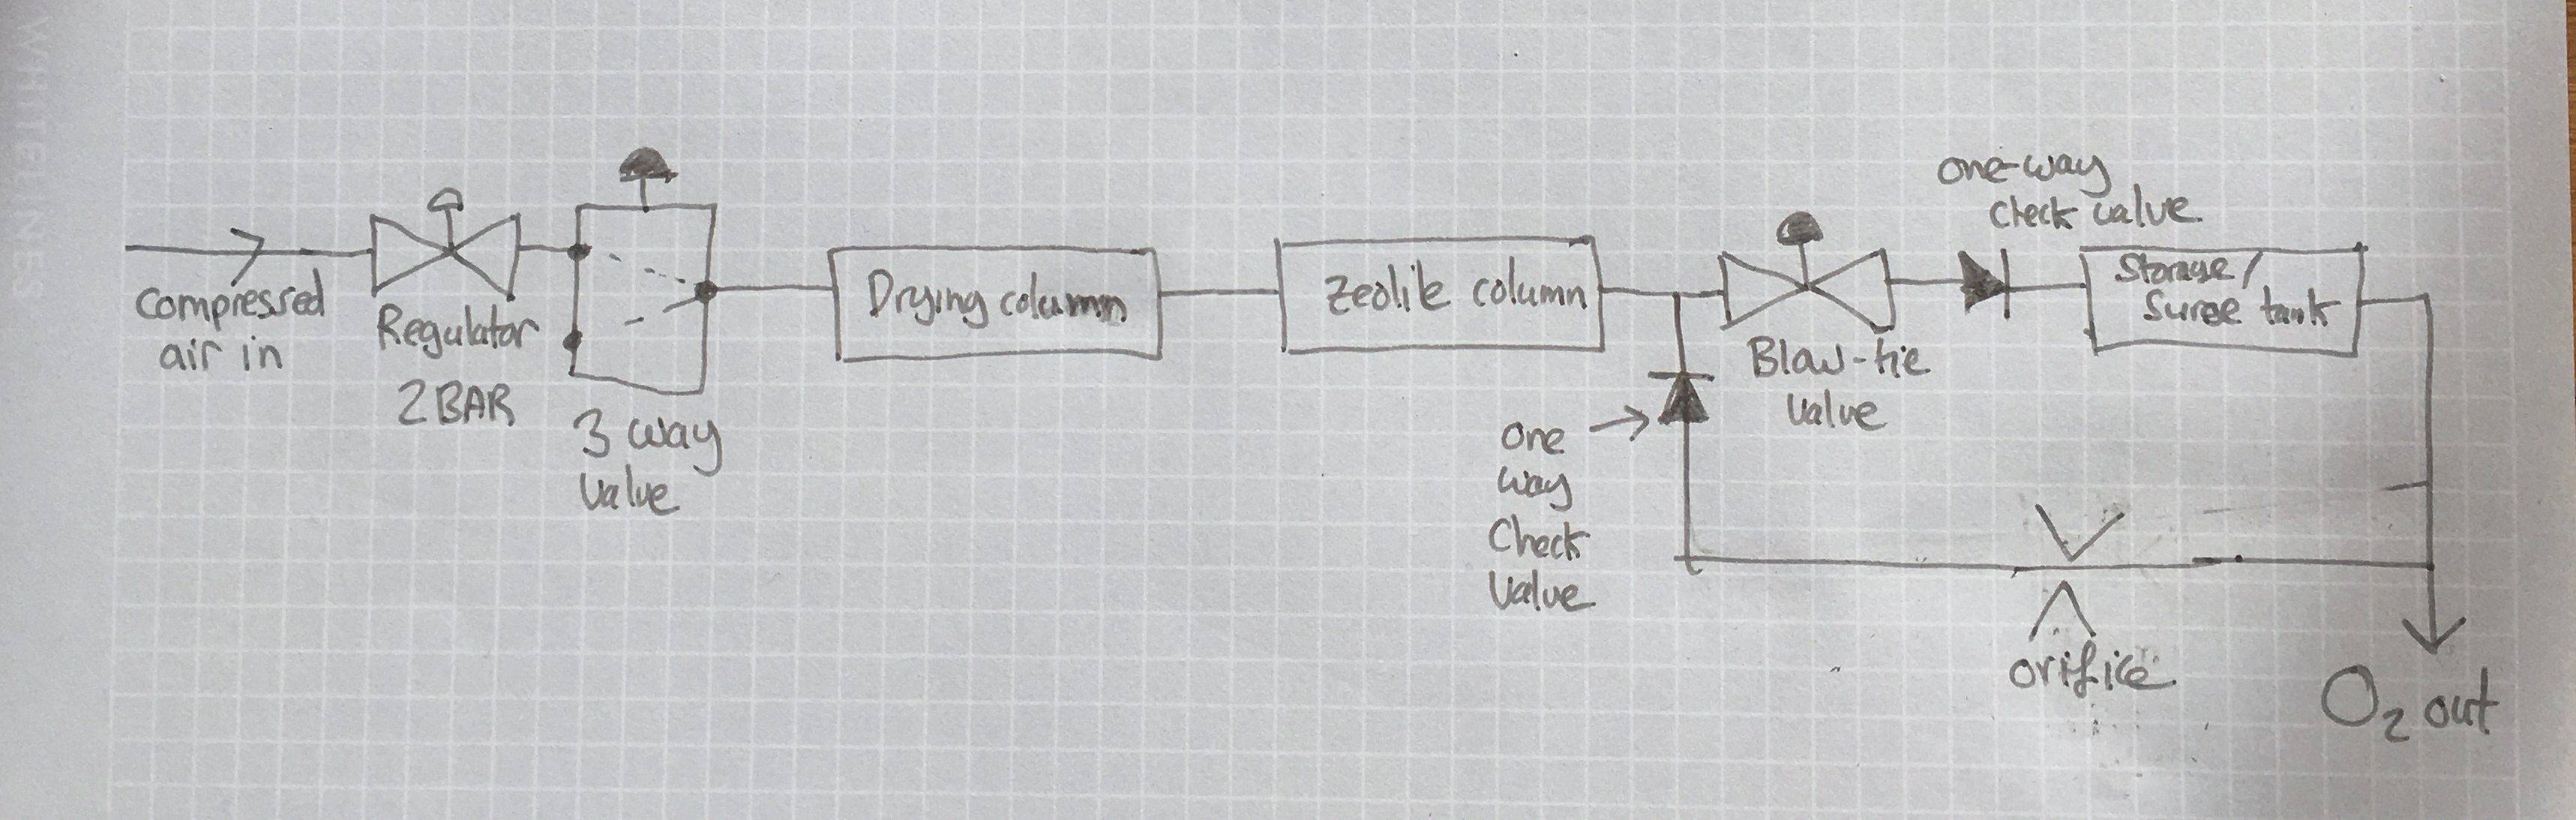 WHITELINES
compressed
air in
Regulator
2BAR
3 way
Valve
Drying column
Zeolite column
one-way
check valve
Blow-tie
valve
Storage/
Surge tank
one
way
Check
Valve
orifice
O₂ out